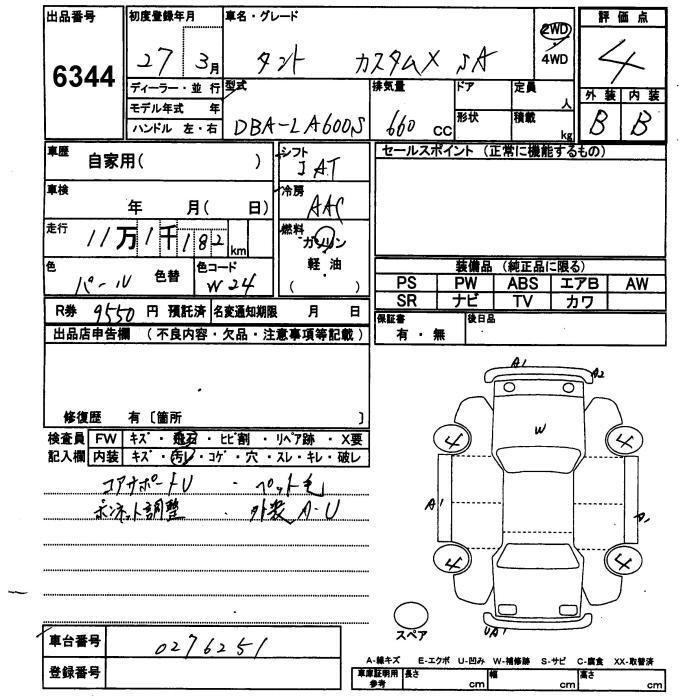 出品番号
6344
初度登録年月
27 3月
車名・グレード
タント カスタムX SA
2WD
4WD
評価点
4
外装 内装
B B
ディーラー・並行
モデル年式 年
ハンドル 左・右
型式
DBA-LA600S
排気量
660 CC
ドア
形状
定員
人
積載
kg
車歴
自家用( )
シフト
IAT
セールスポイント (正常に機能するもの)
車検
年 月( 日)
冷房
AAC
走行
11万1千182km
燃料
ガソリン
軽・油
( )
色
パール 色替
色コード
W24
装備品 (純正品に限る)
PS PW ABS エアB AW
SR ナビ TV カワ
R券 9550円 預託済 名変通知期限 月 日
保証書
有・無
後日品
出品店申告欄 (不良内容・欠品・注意事項等記載)
修復歴 有〔箇所 〕
検査員 FW キズ・飛石・ヒビ割・リペア跡・X要
記入欄 内装 キズ・汚レ・コゲ・穴・スレ・キレ・破レ
コアサポートU ・ペット毛
ボンネット調整 ・外装A-U
A1 A2
W
4 4
A1 A1
4 4
UA1
スペア
車台番号
0276251
登録番号
A-線キズ E-エクボ U-凹み W-補修跡 S-サビ C-腐食 XX-取替済
車庫証明用
参考
長さ cm 幅 cm 高さ cm